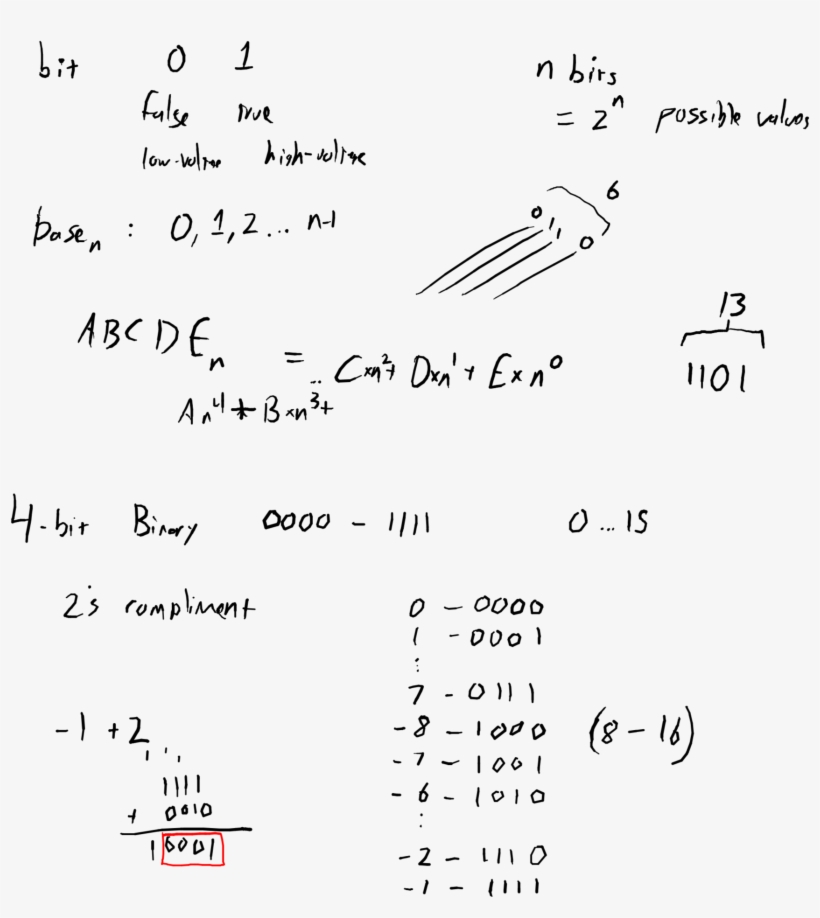 bit 0 1
false true
low-voltage high-voltage
n bits
= 2ⁿ possible values
baseₙ : 0, 1, 2 ... n-1
6
0 1 1 0
ABCDEₙ = .. C×n²+ D×n¹ + E×n⁰
An⁴ + B×n³+
13
1101
4-bit Binary 0000 - 1111 0 ... 15
2's compliment
0 - 0000
1 - 0001
⋮
7 - 0111
-8 - 1000 (8-16)
-7 - 1001
-6 - 1010
⋮
-2 - 1110
-1 - 1111
-1 + 2
1 1 1
1111
+ 0010
1 0001